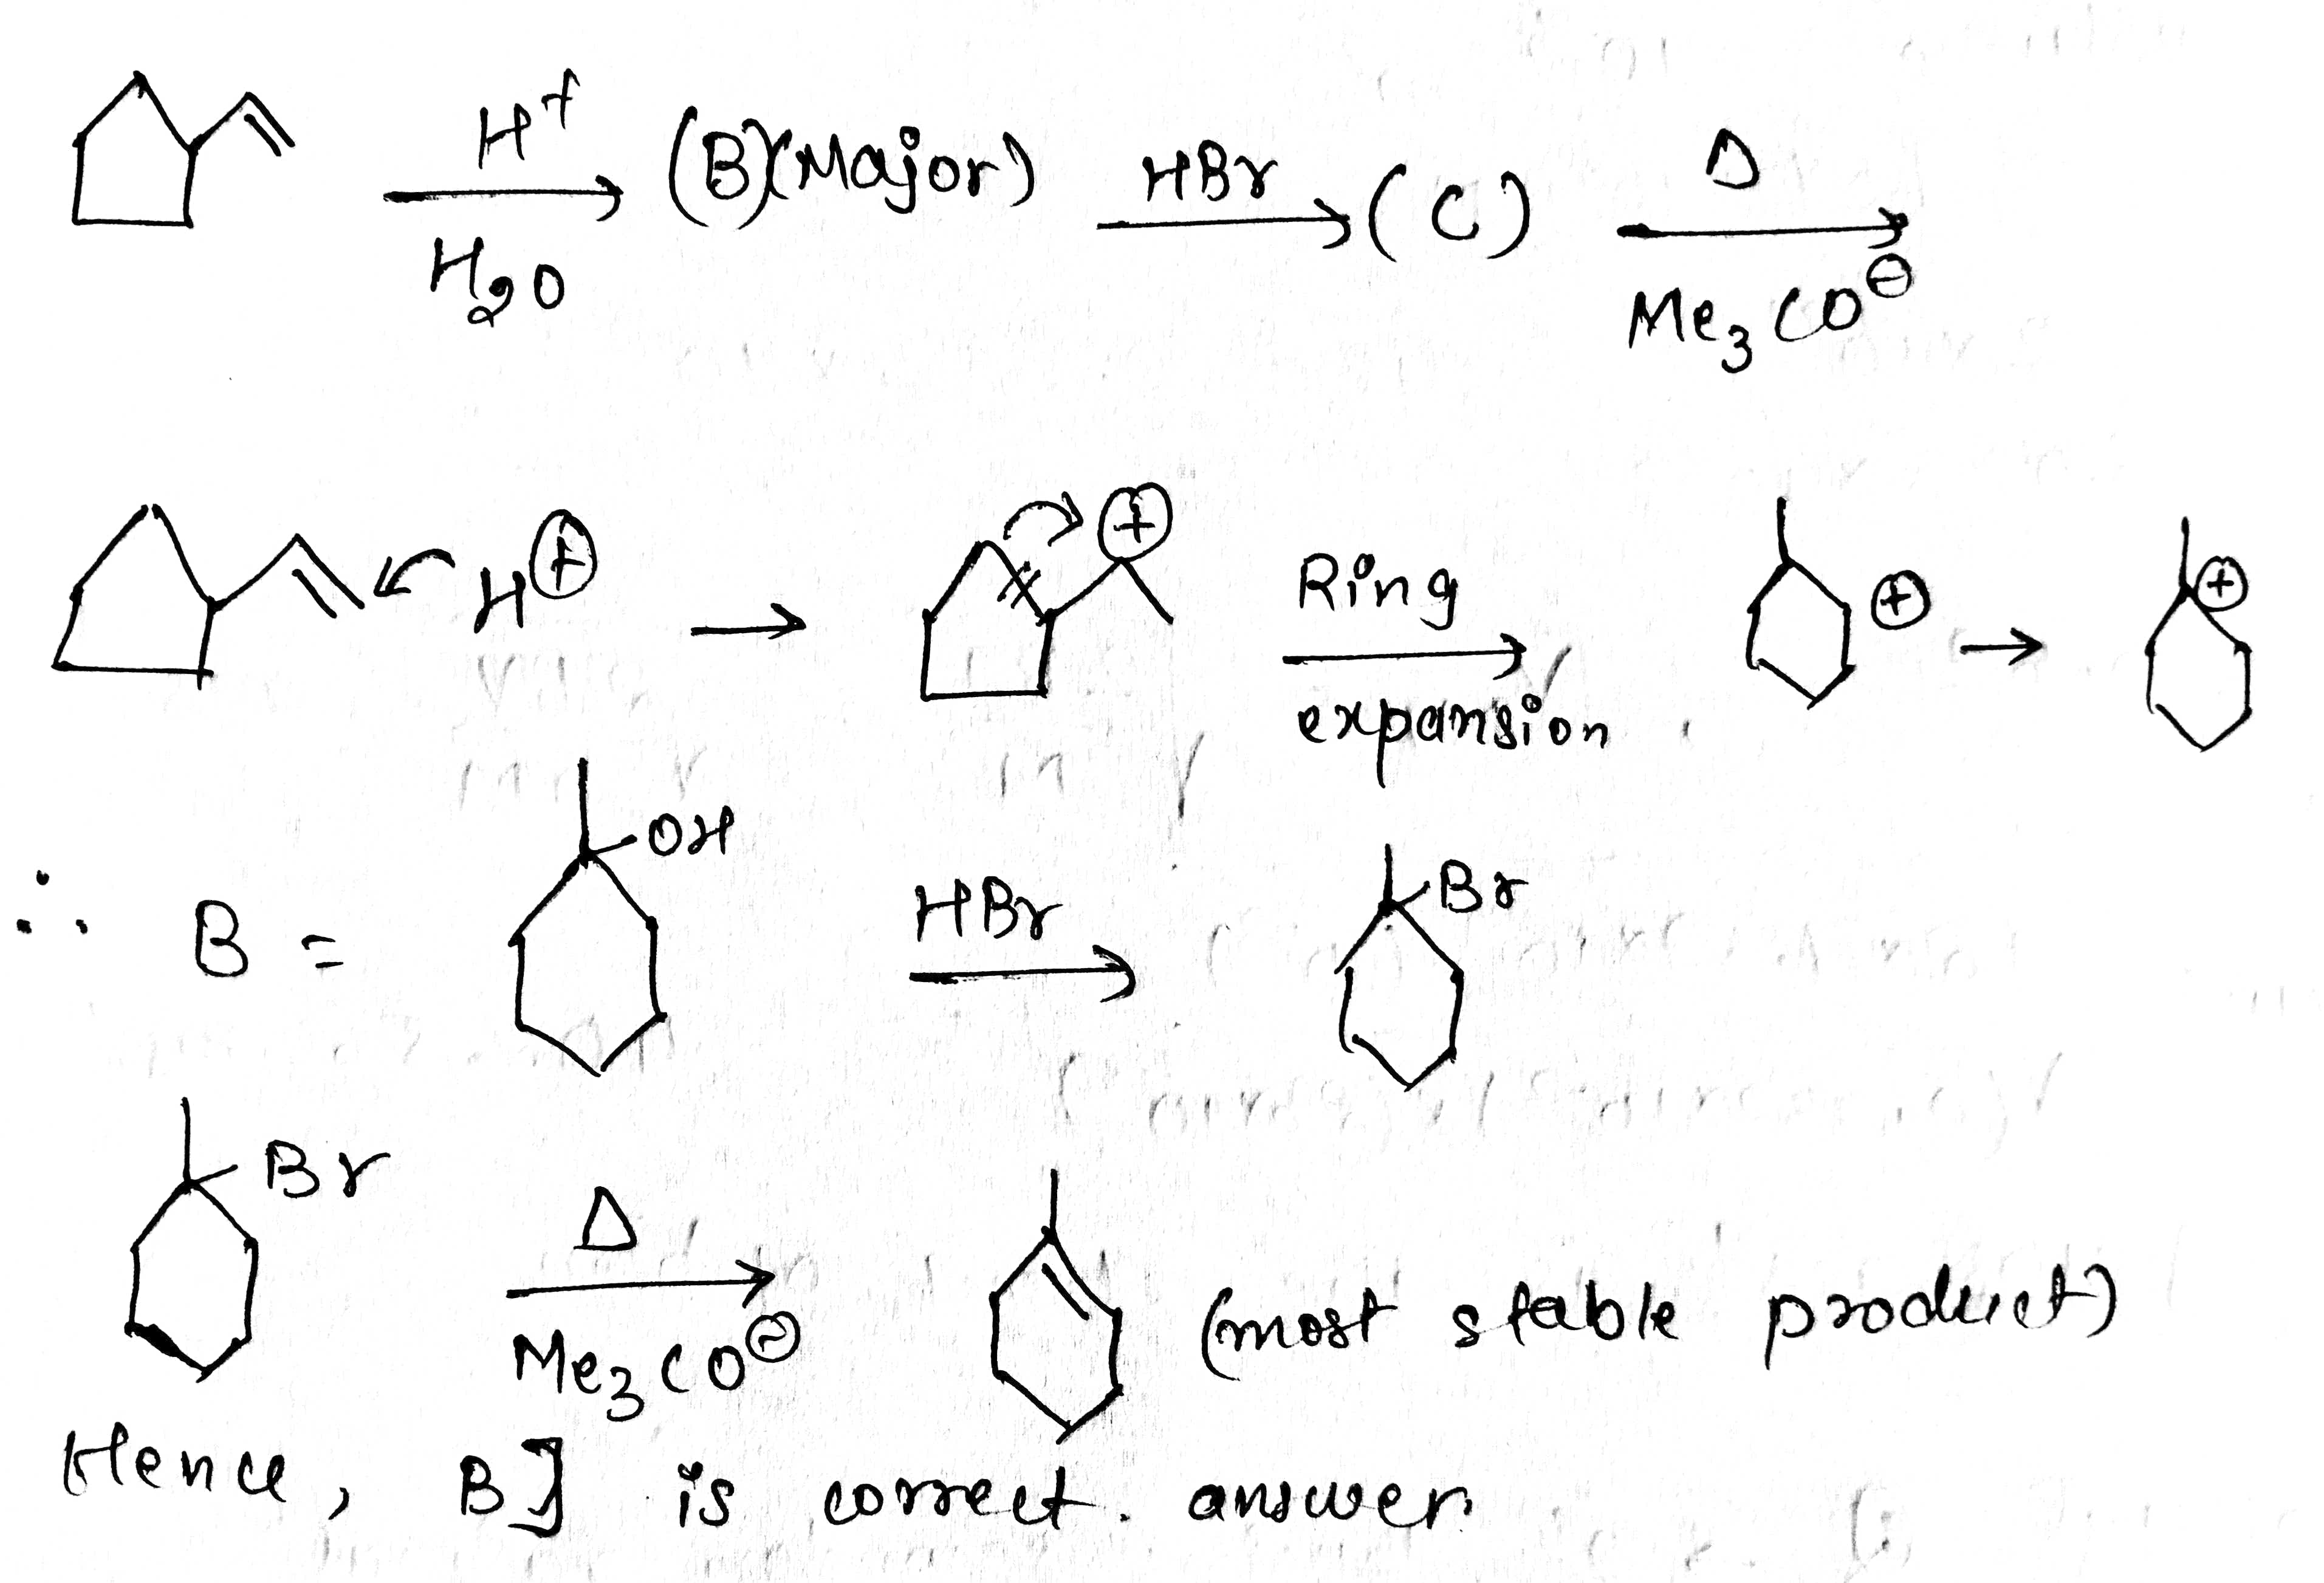 H⁺
(B)(Major) HBr (C) Δ
H₂O Me₃CO⊖
H⊕ → ⊕ Ring ⊕ → ⊕
expansion
∴ B = OH HBr Br
Br Δ (most stable product)
Me₃CO⊖
Hence, B] is correct. answer.